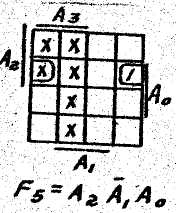 A3
A2
X X
X X 1
X
X
A0
A1
F5 = A2 Ā1 A0